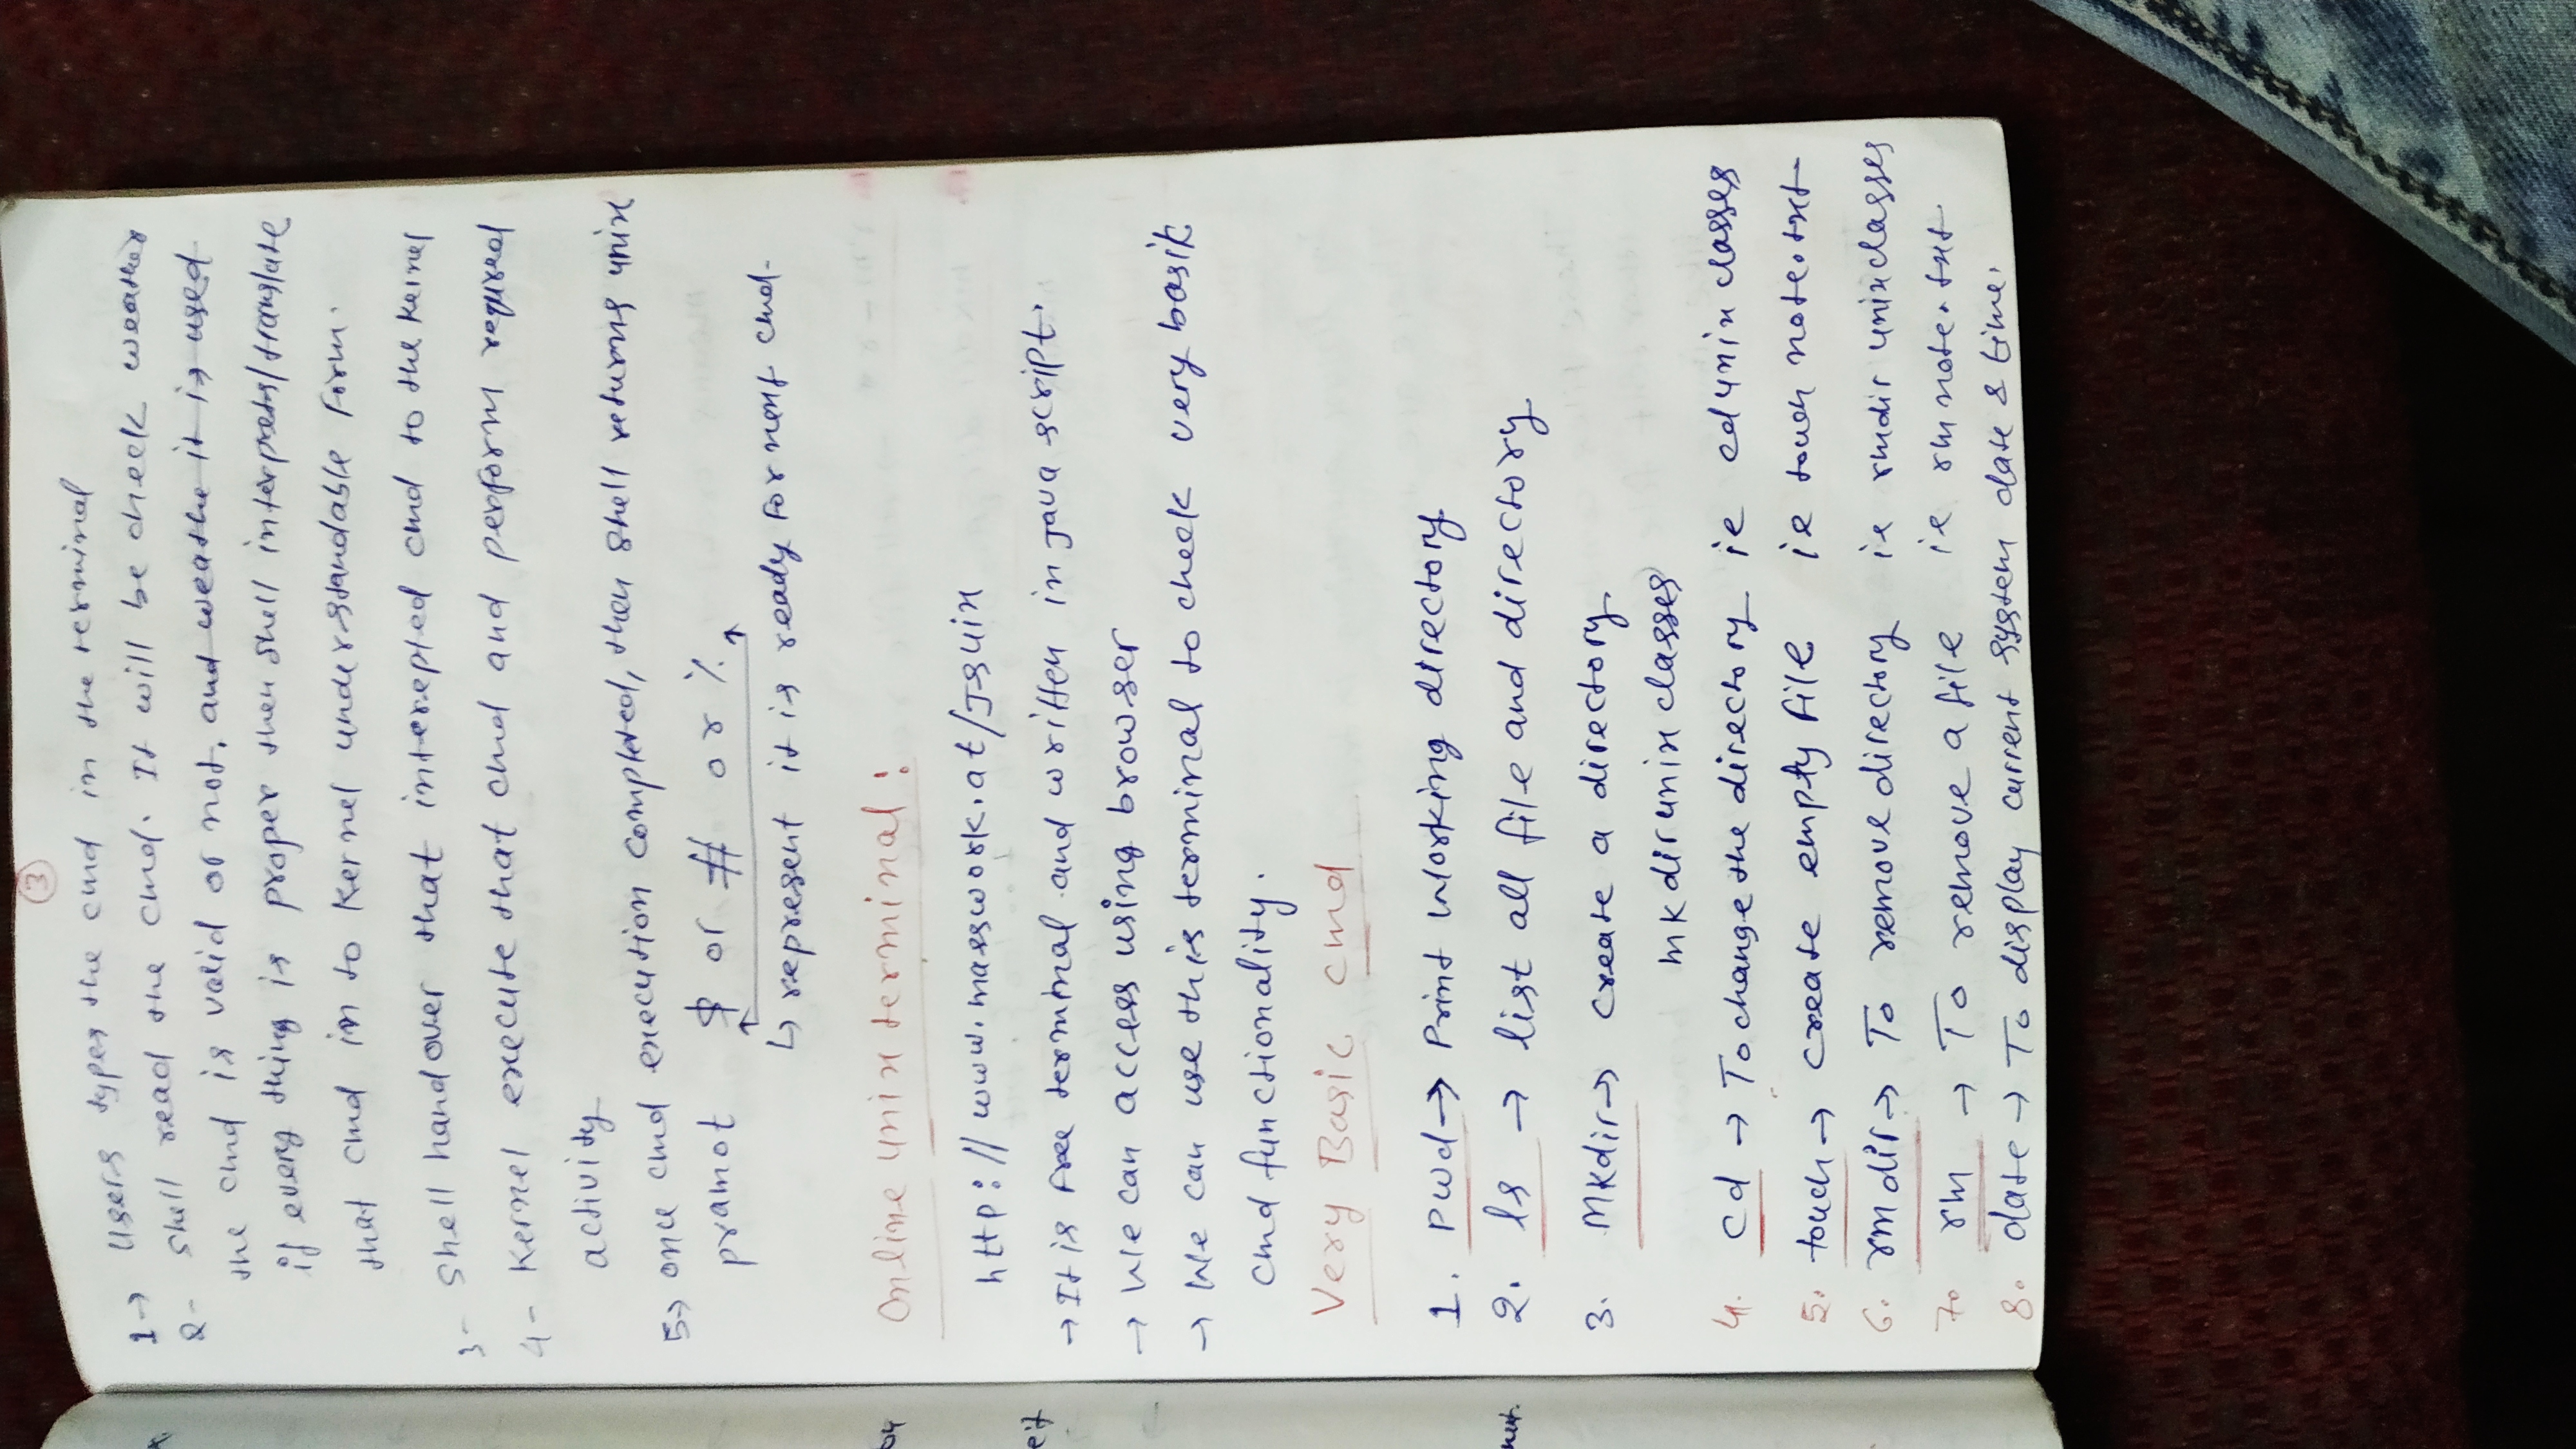 3
1→ Users types the cmd in the terminal
2- Shell read the cmd. It will be check weather
the cmd is valid or not, and weathe it is used
if every thing is proper then shell interprets/translate
that cmd in to kernel understandable form.
3- Shell handover that interepted cmd to the kernel
4- Kernel execute that cmd and perform required
activity
5→ once cmd execution completed, then shell returns unix
pramot $ or # or %
↳ represent it is ready for next cmd-
Online unix terminal:
http://www.masswork.at/Jsuix
→ It is free terminal and written in java script.
→ We can access using browser
→ We can use this terminal to check very basik
cmd functionality.
Very Basic cmd
1. Pwd → Print working directory
2. ls → list all file and directory
3. Mkdir → create a directory
mkdir unix classes
4. cd → To change the directory ie cd unix classes
5. touch → create empty file ie touch note.txt
6. rmdir → To remove directory ie rmdir unixclasses
7. rm → To remove a file ie rm note.txt
8. date → To display current system date & time.